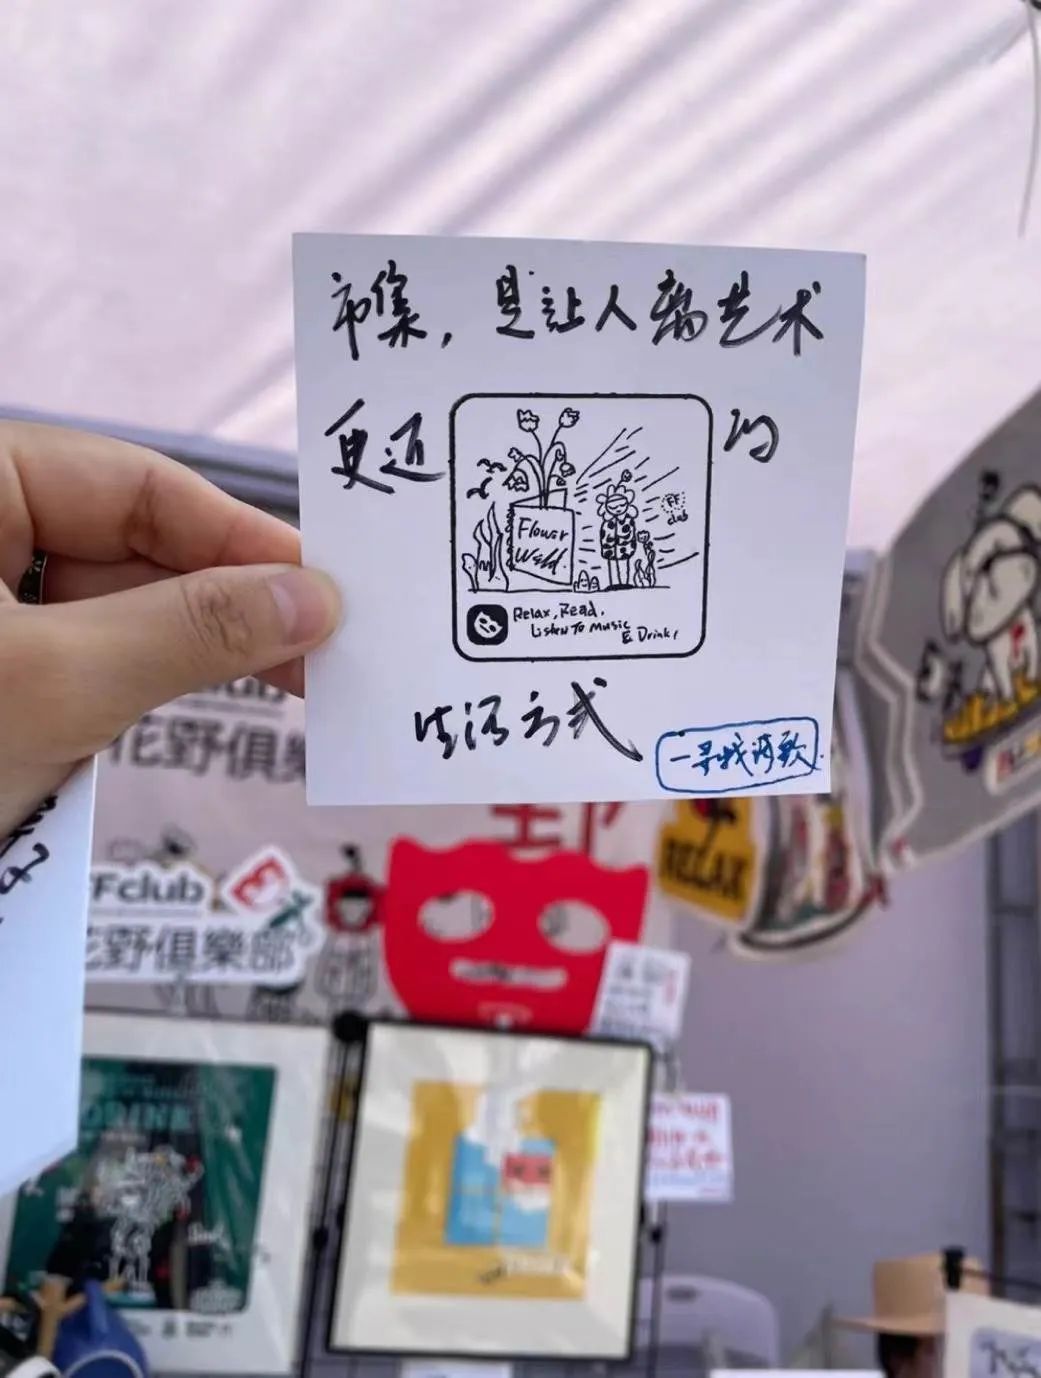 市集，是让人离艺术
更近
的
Flower
Weld.
FF
club
Relax, Read,
Listen To Music
& Drink,
生活方式
一寻找诗歌
花野俱樂
野
RELAX
Fclub
花野俱樂部
DRINK